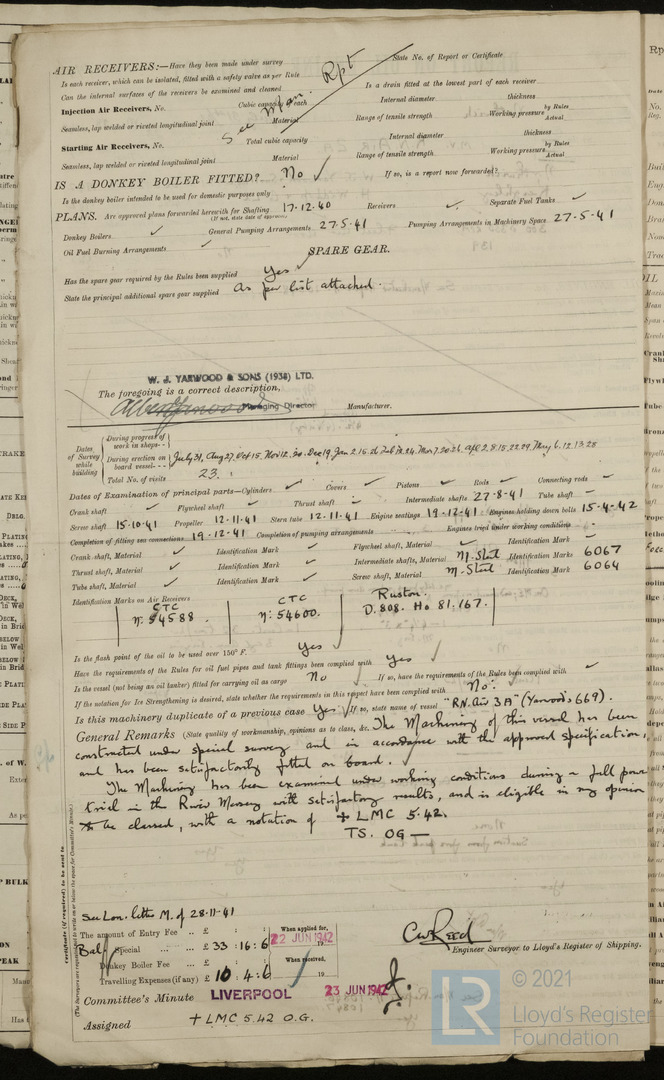 AIR RECEIVERS:—Have they been made under survey State No. of Report or Certificate
Is each receiver, which can be isolated, fitted with a safety valve as per Rule
Can the internal surfaces of the receivers be examined and cleaned Is a drain fitted at the lowest part of each receiver
See Man. Rpt
Injection Air Receivers, No. Cubic capacity of each Internal diameter thickness
Seamless, lap welded or riveted longitudinal joint Material Range of tensile strength Working pressure by Rules Actual
Starting Air Receivers, No. Total cubic capacity Internal diameter thickness
Seamless, lap welded or riveted longitudinal joint Material Range of tensile strength Working pressure by Rules Actual
IS A DONKEY BOILER FITTED? No ✓ If so, is a report now forwarded?
Is the donkey boiler intended to be used for domestic purposes only
PLANS. Are approved plans forwarded herewith for Shafting 17.12.40 Receivers ✓ Separate Fuel Tanks ✓
(If not, state date of approval)
Donkey Boilers ✓ General Pumping Arrangements 27.5.41 Pumping Arrangements in Machinery Space 27.5.41
Oil Fuel Burning Arrangements ✓
SPARE GEAR.
Has the spare gear required by the Rules been supplied Yes ✓
State the principal additional spare gear supplied As per list attached.
W. J. YARWOOD & SONS (1938) LTD.
The foregoing is a correct description,
Managing Director Manufacturer.
Dates of Survey while building
During progress of work in shops
During erection on board vessel July 31, Aug 27, Oct 15, Nov 12. 20. Dec 19, Jan 2. 15. Feb 24, Mar 7. 20. 26, Apl 2. 8. 15. 22. 29 May 6. 12. 13. 28
Total No. of visits 23.
Dates of Examination of principal parts—Cylinders ✓ Covers ✓ Pistons ✓ Rods ✓ Connecting rods ✓
Crank shaft ✓ Flywheel shaft ✓ Thrust shaft ✓ Intermediate shafts 27-8-41 Tube shaft ✓
Screw shaft 15.10.41 Propeller 12-11-41 Stern tube 12.11.41 Engine seatings 19.12.41 Engines holding down bolts 15.4.42
Completion of fitting sea connections 19.12.41 Completion of pumping arrangements Engines tried under working conditions
Crank shaft, Material ✓ Identification Mark ✓ Flywheel shaft, Material ✓ Identification Mark ✓
Thrust shaft, Material ✓ Identification Mark ✓ Intermediate shafts, Material M. Steel Identification Marks 6067
Tube shaft, Material ✓ Identification Mark ✓ Screw shaft, Material M. Steel Identification Mark 6064
Identification Marks on Air Receivers
CTC CTC Ruston.
No. 54588. No. 54600. D.808. Ho 81.167.
Is the flash point of the oil to be used over 150° F. Yes ✓
Have the requirements of the Rules for oil fuel pipes and tank fittings been complied with Yes ✓
Is the vessel (not being an oil tanker) fitted for carrying oil as cargo No ✓ If so, have the requirements of the Rules been complied with ✓
If the notation for Ice Strengthening is desired, state whether the requirements in this respect have been complied with No.
Is this machinery duplicate of a previous case Yes ✓ If so, state name of vessel "RN. Air 3A" (Yarwoods 669).
General Remarks (State quality of workmanship, opinions as to class, &c. The Machinery of this vessel has been
constructed under special survey and in accordance with the approved specification,
and has been satisfactorily fitted on board.
The Machinery has been examined under working conditions during a full power
trial in the River Mersey with satisfactory results, and is eligible in my opinion
to be classed, with a notation of + LMC 5.42.
TS. OG —
Certificate (if required) to be sent to
(The Surveyors are requested not to write on or below the space for Committee's Minute.)
See Lon. letter M. of 28.11.41
The amount of Entry Fee .. £ : : When applied for,
Bal Special .. £ 33 : 16 : 6 22 JUN 1942
Donkey Boiler Fee .. £ : : When received,
Travelling Expenses (if any) £ 10 . 4 : 6 19
Engineer Surveyor to Lloyd's Register of Shipping.
Committee's Minute LIVERPOOL 23 JUN 1942
Assigned + LMC 5.42 O.G.
LR
© 2021
Lloyd's Register
Foundation